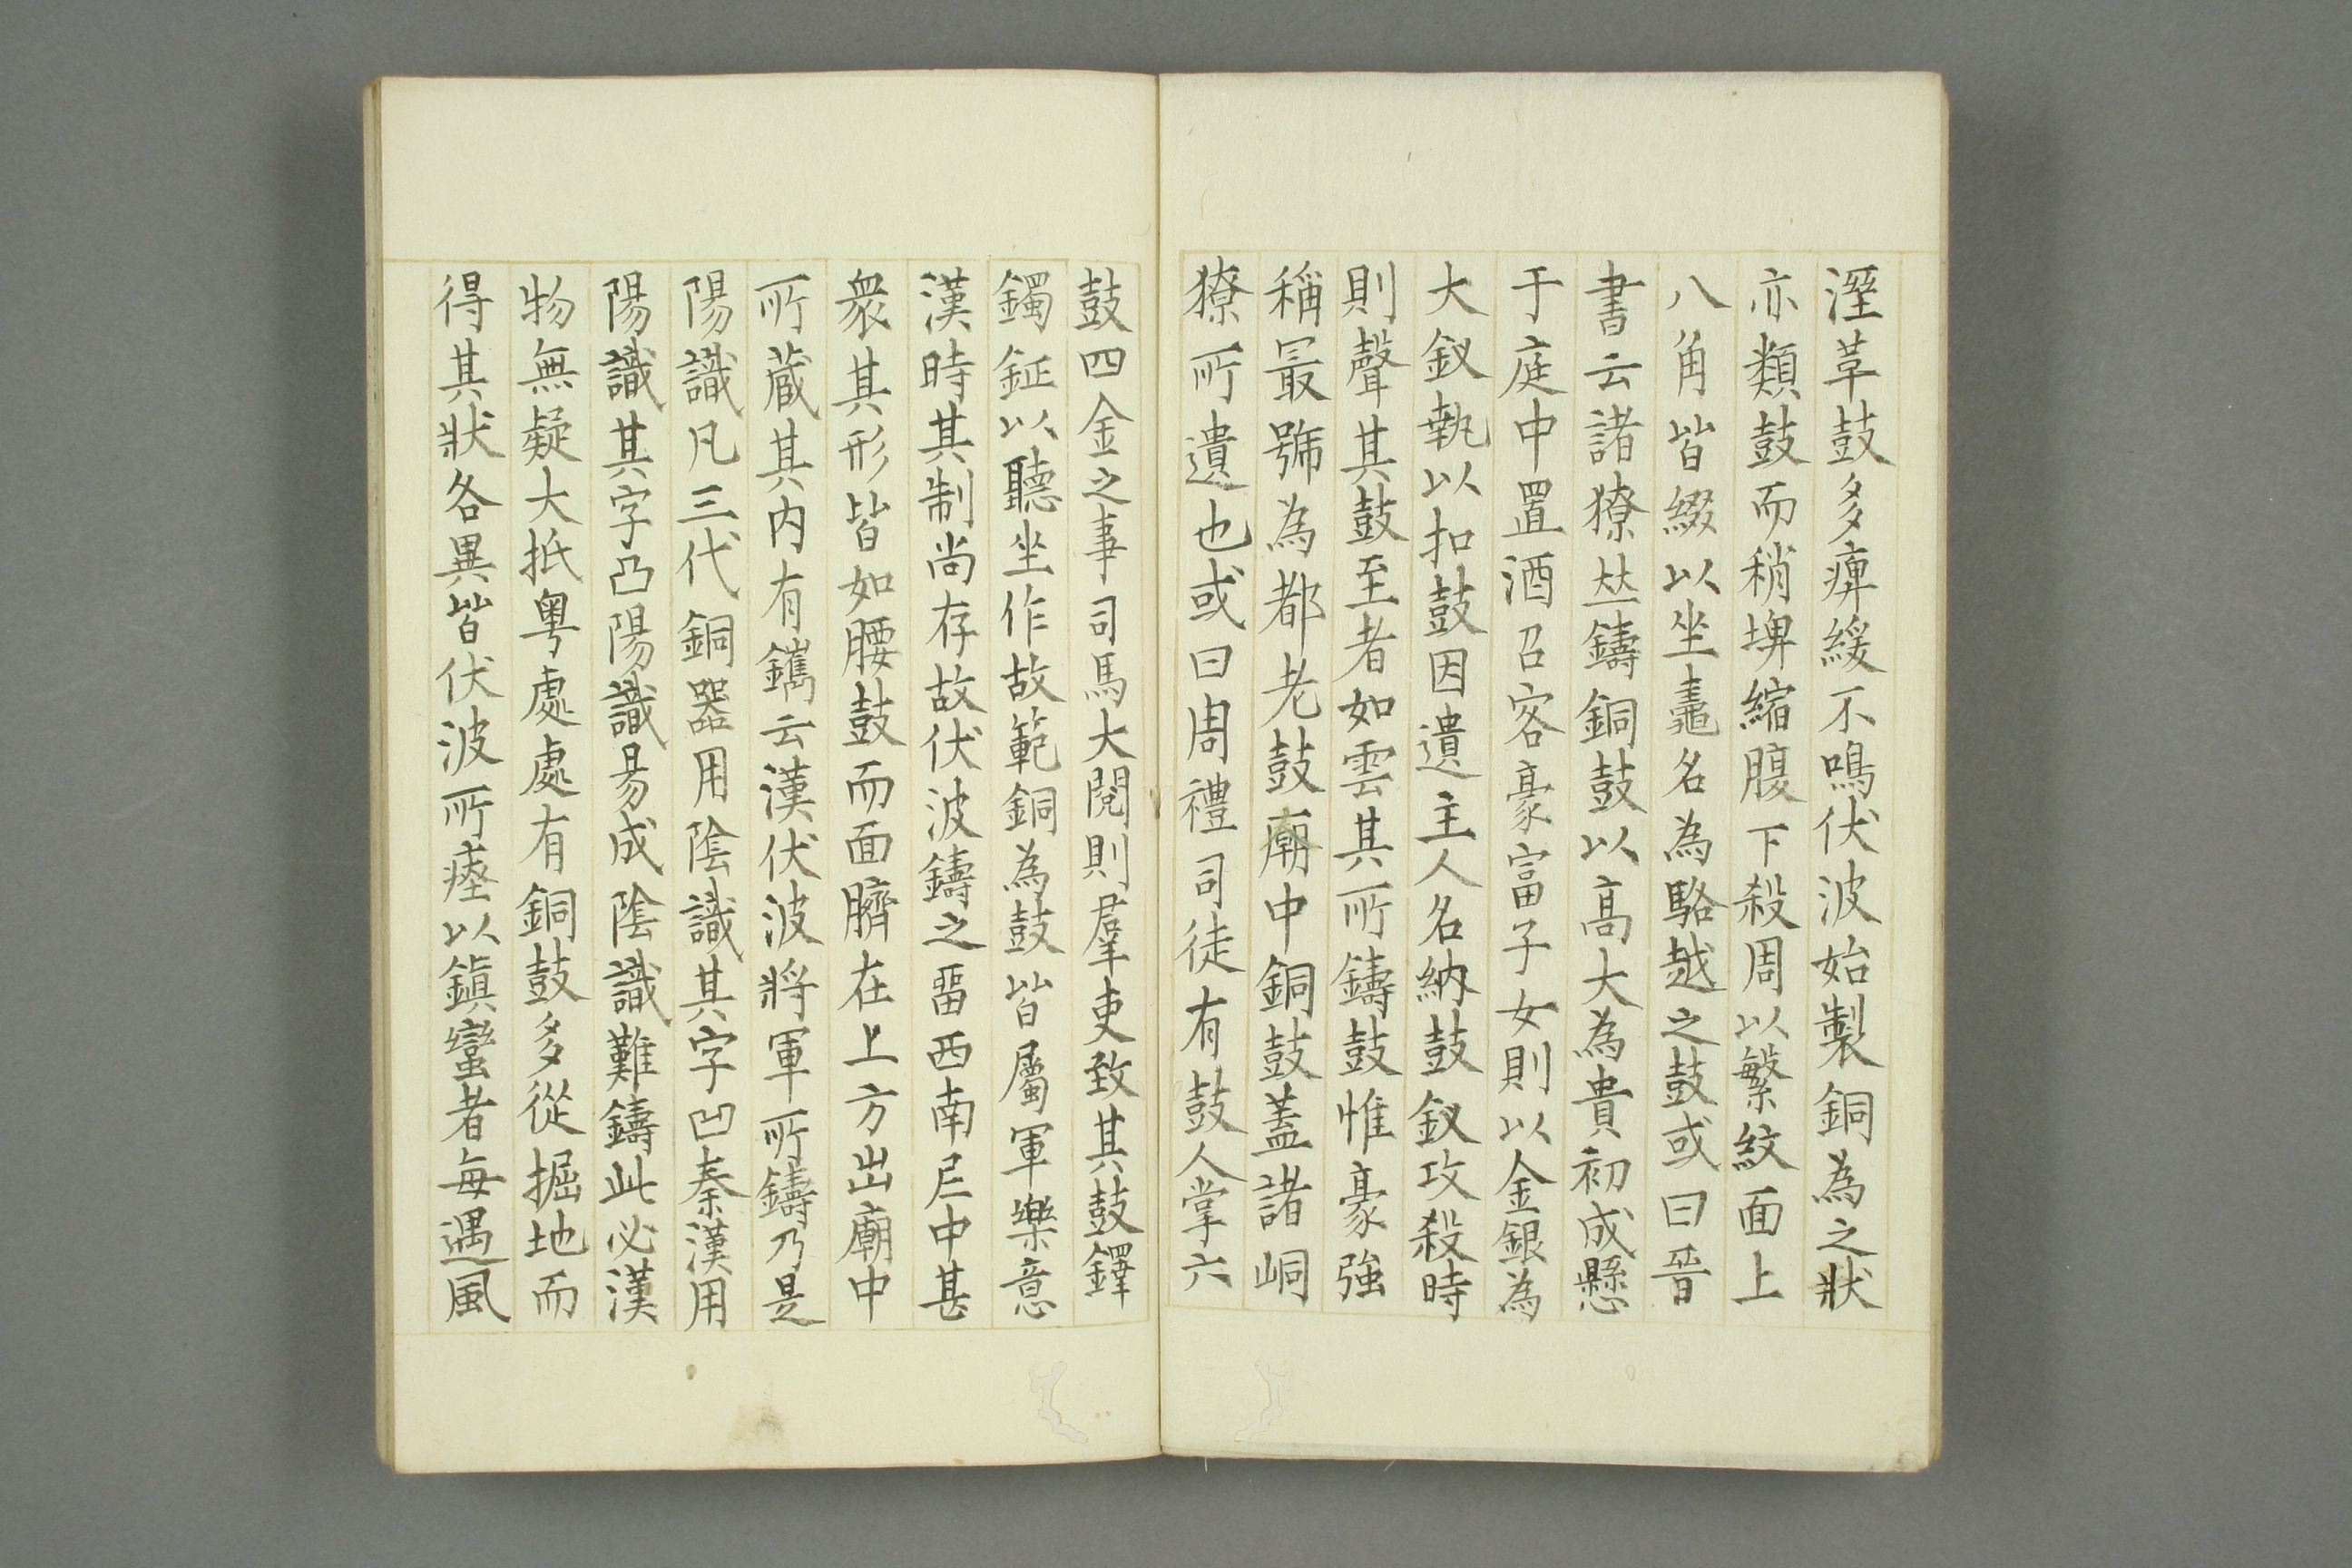 溼革鼓多痺緩不鳴伏波始製銅為之狀
亦類鼓而稍埤縮腹下殺周以繁紋面上
八角皆綴以坐鼃名為駱越之鼓或曰晉
書云諸獠𠀤鑄銅鼓以高大為貴初成懸
于庭中置酒召客豪富子女則以金銀為
大釵執以扣鼓因遺主人名納鼓釵攻殺時
則聲其鼓至者如雲其所鑄鼓惟豪強
稱最號為都老鼓廟中銅鼓蓋諸峒
獠所遺也或曰周禮司徒有鼓人掌六
鼓四金之事司馬大閱則羣吏致其鼓鐸
鐲鉦以聽坐作故範銅為鼓皆屬軍樂意
漢時其制尚存故伏波鑄之畱西南𡰥中甚
衆其形皆如腰鼓而面臍在上方出廟中
所蔵其内有鑴云漢伏波將軍所鑄乃是
陽識凡三代銅器用陰識其字凹秦漢用
陽識其字凸陽識易成陰識難鑄此必漢
物無疑大抵粵處處有銅鼓多從掘地而
得其狀各異皆伏波所瘞以鎮蠻者每遇風